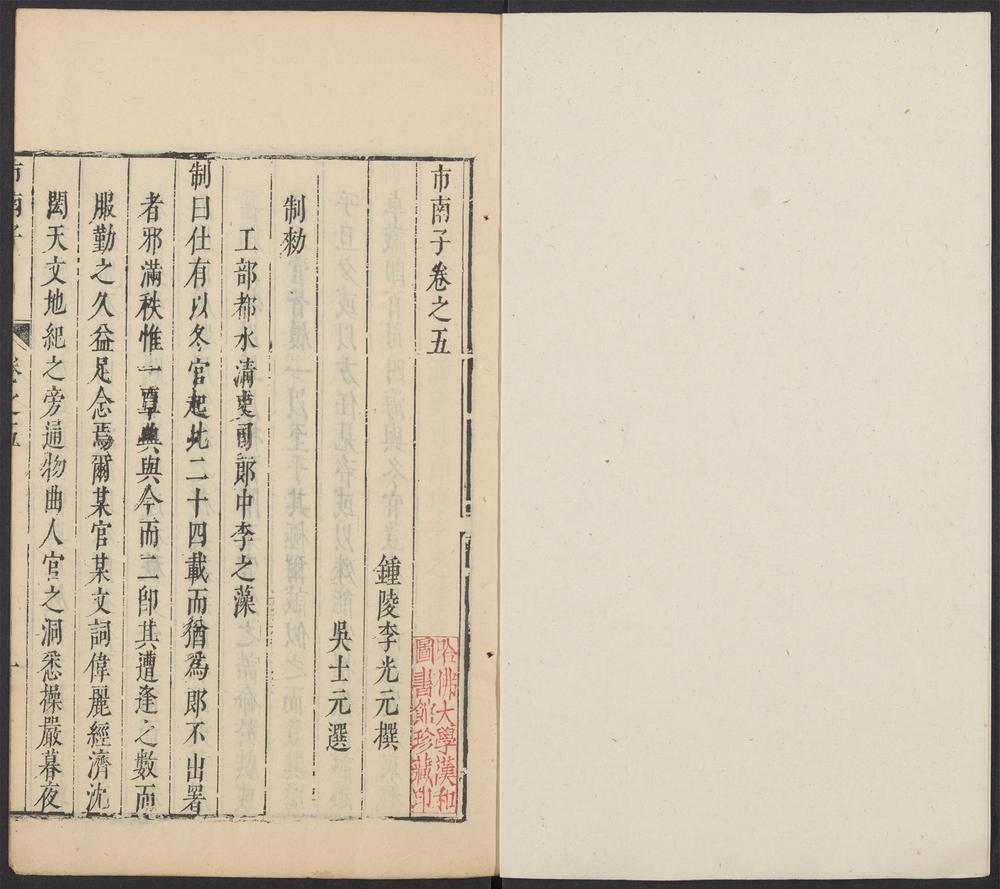 市南子卷之五
鍾陵李光元撰
吳士元選
制勑
工部都水清吏司郎中李之藻
制曰仕有以冬官起比二十四載而猶為郎不出署
者邪滿秩惟一覃典與今而二卽其遭逢之數而
服勤之久益足念焉爾某官某文詞偉麗經濟沈
閎天文地紀之旁通物曲人官之洞悉操嚴暮夜
市南子
卷之五
一
哈佛大學漢和
圖書館珍藏印